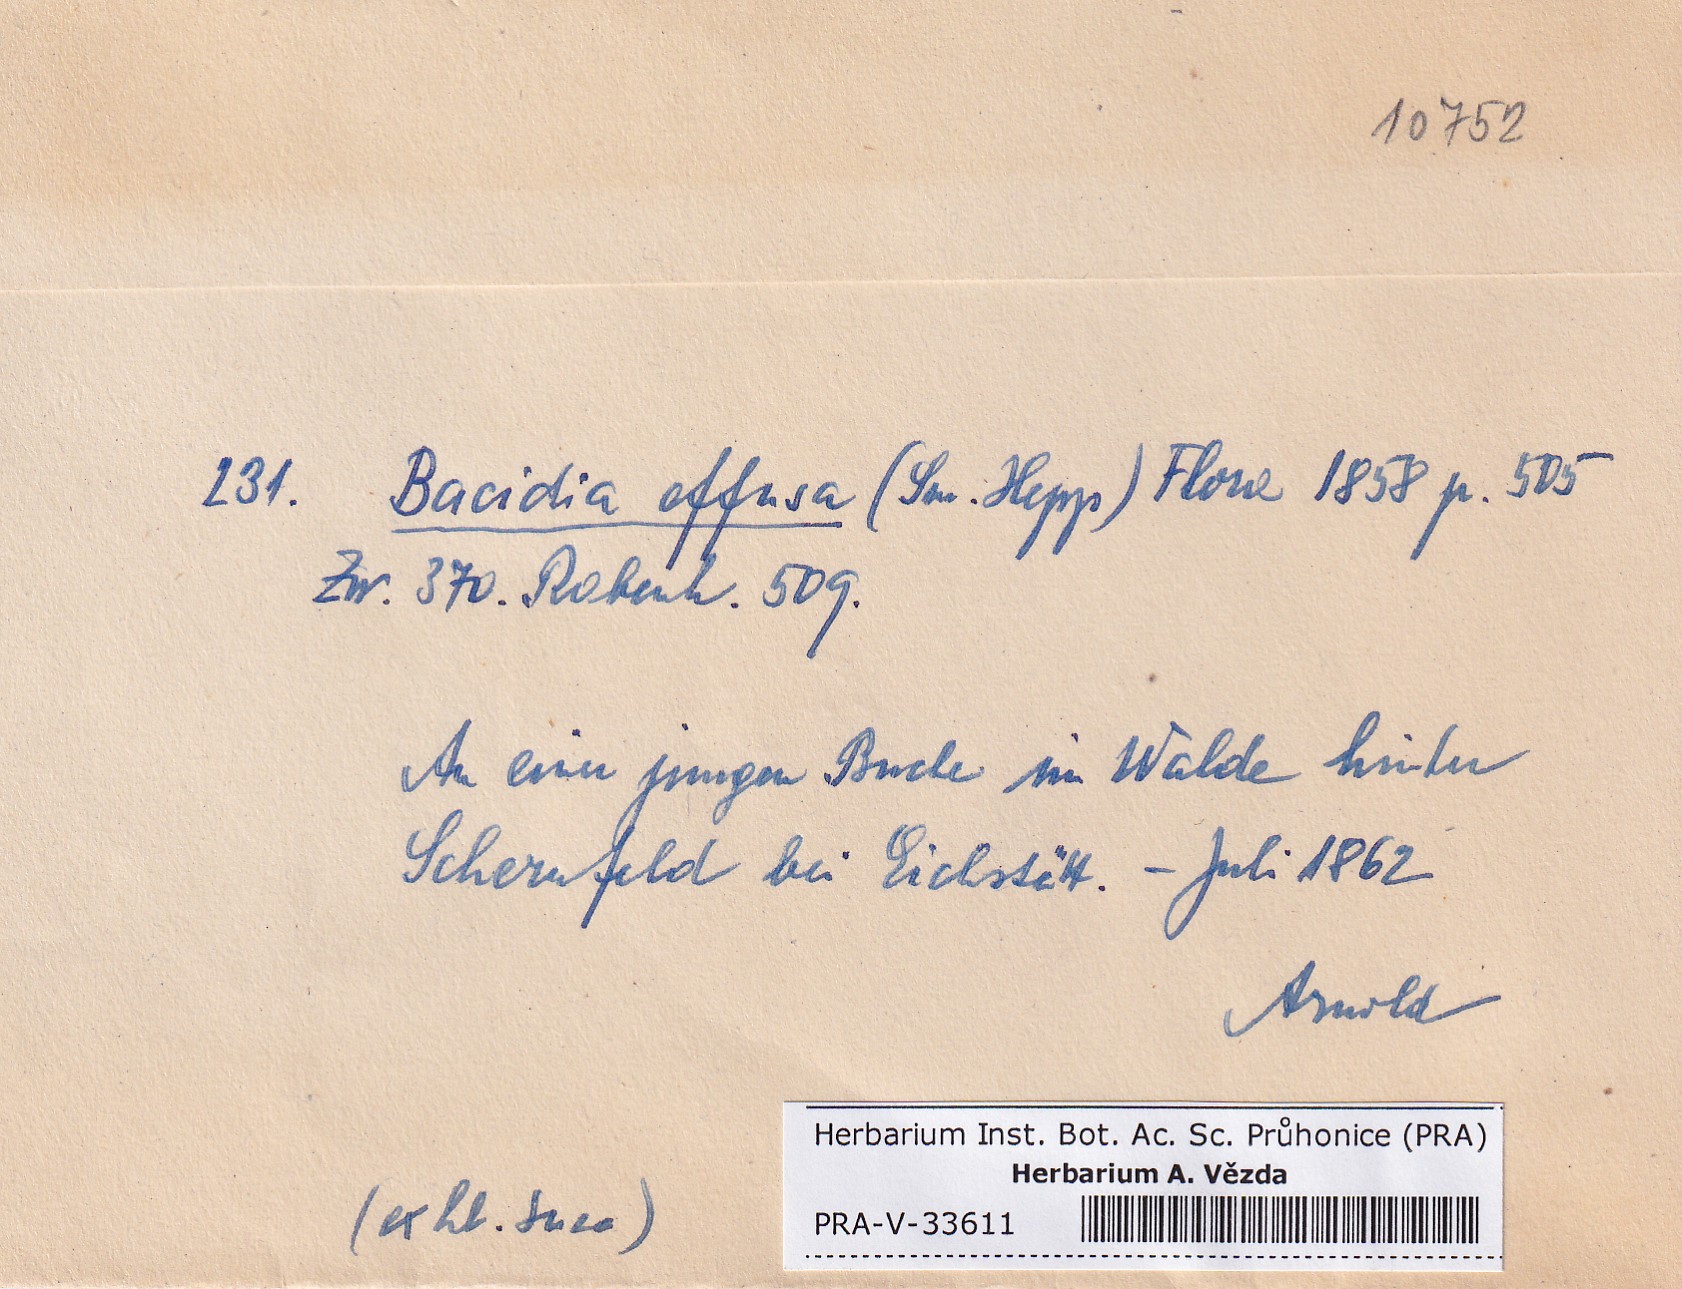 10752
231. Bacidia effusa (Sm. Hepp) Flora 1858 p. 505
Zw. 370. Rabenh. 509.
An einer jungen Buche im Walde hinter
Schernfeld bei Eichstätt. – Juli 1862
Arnold
(ex hb.
Herbarium Inst. Bot. Ac. Sc. Průhonice (PRA)
Herbarium A. Vězda
PRA-V-33611